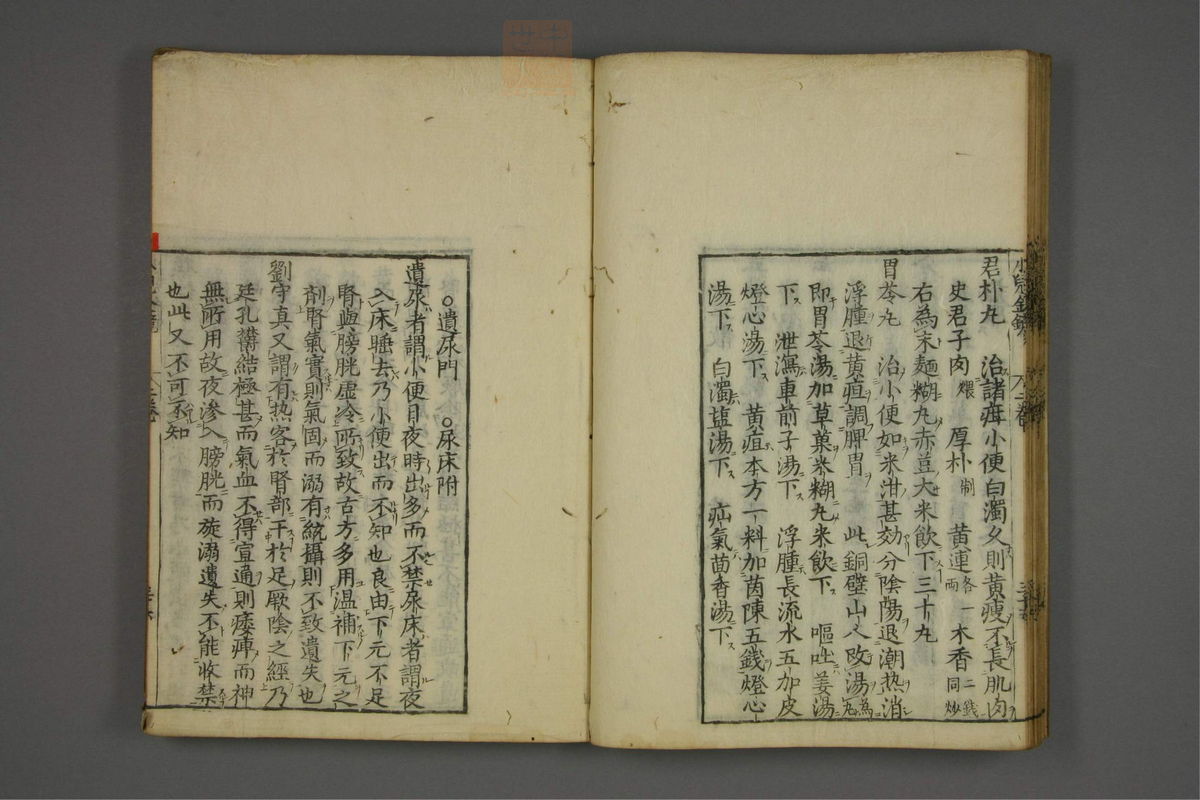 君朴丸　治諸疳小便白濁久則黄瘦不長肌肉
史君子肉煨　厚朴制　黄連各一両　木香二錢同炒
右為末麵糊丸赤荳大米飲下三十丸
胃苓丸　治小便如米泔甚効分陰陽退潮热消
浮腫退黄疸調脾胃　此銅壁山人改湯為丸
即胃苓湯加草菓米糊丸米飲下　嘔吐姜湯
下　泄瀉車前子湯下　浮腫長流水五加皮
燈心湯下　黄疸本方一料加茵陳五錢燈心
湯下　白濁塩湯下　疝氣茴香湯下
○遺尿門　○尿床附
遺尿者謂小便日夜時出多而不禁尿床者謂夜
入床睡去乃小便出而不知也良由下元不足
腎與膀胱虚冷所致故古方多用温補下元之
剤腎氣實則氣固而溺有統攝則不致遺失也
劉守真又謂有热客於腎部干於足厥陰之經乃
廷孔欝結極甚而氣血不得宣通則痿痺而神
無所用故夜滲入膀胱而旋溺遺失不能收禁
也此又不可不知